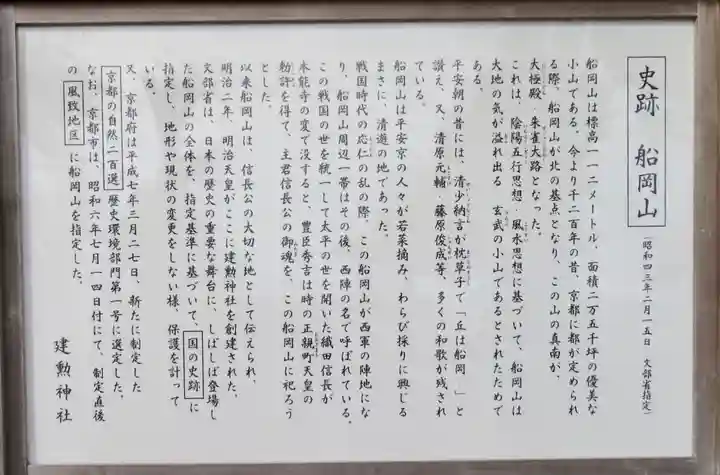 史跡 船岡山
(昭和四三年二月一五日 文部省指定)
船岡山は標高一一二メートル、面積二万五千坪の優美な
小山である。今より千二百年の昔、京都に都が定められ
る際、船岡山が北の基点となり、この山の真南が、
大極殿、朱雀大路となった。
これは、陰陽五行思想、風水思想に基づいて、船岡山は
大地の気が溢れ出る 玄武の小山であるとされたためで
ある。
平安朝の昔には、清少納言が枕草子で「丘は船岡…」と
讃え、又、清原元輔、藤原俊成等、多くの和歌が残され
ている。
船岡山は平安京の人々が若菜摘み、わらび採りに興じる
まさに、清遊の地であった。
戦国時代の応仁の乱の際、この船岡山が西軍の陣地にな
り、船岡山周辺一帯はその後、西陣の名で呼ばれている。
この戦国の世を統一して太平の世を開いた織田信長が
本能寺の変で没すると、豊臣秀吉は時の正親町天皇の
勅許を得て、主君信長公の御魂を、この船岡山に祀ろう
とした。
以来船岡山は、信長公の大切な地として伝えられ、
明治二年、明治天皇がここに建勲神社を創建された。
文部省は、日本の歴史の重要な舞台に、しばしば登場し
た船岡山の全体を、指定基準に基づいて、国の史跡に
指定し、地形や現状の変更をしない様、保護を計って
いる。
又、京都府は平成七年三月二七日、新たに制定した
京都の自然二百選 歴史環境部門第一号に選定した。
なお、京都市は、昭和六年七月一四日付にて、制定直後
の 風致地区 に船岡山を指定した。
建勲神社